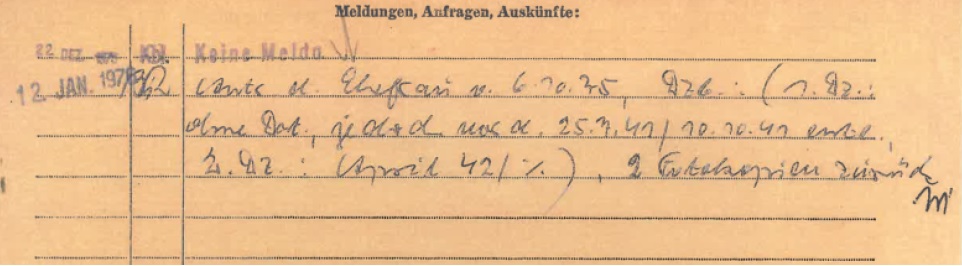 Meldungen, Anfragen, Auskünfte:
22 DEZ. Keine Meldg.
12. JAN. 1976 Antr. d. Ehefrau v. 6.10.75, Dzb.: (1. Dz.:
ohne Dat., jedoch vor d. 25.7.41 / 10.10.41 entl.,
2. Dz.: (April 42 / %.), 2 Fotokopien zurück